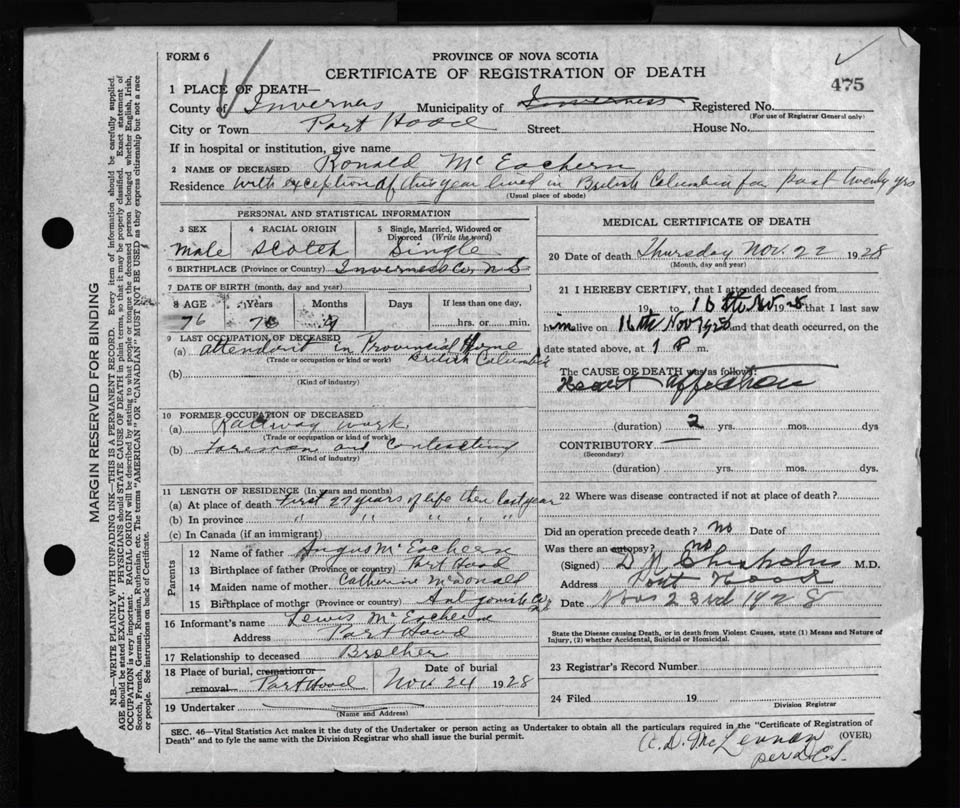 FORM 6
PROVINCE OF NOVA SCOTIA
CERTIFICATE OF REGISTRATION OF DEATH
475
1 PLACE OF DEATH—
County of Inverness Municipality of Inverness Registered No.
(For use of Registrar General only)
City or Town Port Hood Street House No.
If in hospital or institution, give name
2 NAME OF DECEASED Ronald McEachern
Residence With exception of this year lived in British Columbia for past twenty yrs
(Usual place of abode)
PERSONAL AND STATISTICAL INFORMATION
3 SEX 4 RACIAL ORIGIN 5 Single, Married, Widowed or Divorced (Write the word)
Male Scotch Single
6 BIRTHPLACE (Province or Country) Inverness Co. N.S.
7 DATE OF BIRTH (month, day and year)
8 AGE Years Months Days If less than one day,
76 76 9 hrs. or min.
9 LAST OCCUPATION OF DECEASED
(a) Attendant in Provincial Home
(Trade or occupation or kind of work) British Columbia
(b)
(Kind of industry)
10 FORMER OCCUPATION OF DECEASED
(a) Railway work
(Trade or occupation or kind of work)
(b) Foreman and Contracting
(Kind of industry)
11 LENGTH OF RESIDENCE (In years and months)
(a) At place of death First 27 years of life then last year
(b) In province " " " " "
(c) In Canada (if an immigrant)
Parents
12 Name of father Angus McEachern
13 Birthplace of father (Province or country) Port Hood
14 Maiden name of mother Catherine McDonald
15 Birthplace of mother (Province or country) Antigonish Co. N.S.
16 Informant's name Lewis McEachern
Address Port Hood
17 Relationship to deceased Brother
18 Place of burial, cremation or removal Port Hood Date of burial Nov. 24 1928
19 Undertaker
(Name and Address)
MEDICAL CERTIFICATE OF DEATH
20 Date of death Thursday Nov. 22 1928
(Month, day and year)
21 I HEREBY CERTIFY, that I attended deceased from
19 to 16th Nov. 1928 that I last saw
him alive on 16th Nov 1928 and that death occurred, on the
date stated above, at 1 P m.
The CAUSE OF DEATH was as follows:
Heart affection
(duration) 2 yrs. mos. dys
CONTRIBUTORY
(Secondary)
(duration) yrs. mos. dys.
22 Where was disease contracted if not at place of death?
Did an operation precede death? no Date of
Was there an autopsy? no
(Signed) Chisholm M.D.
Address Port Hood
Date Nov 23rd 1928
State the Disease causing Death, or in death from Violent Causes, state (1) Means and Nature of Injury, (2) whether Accidental, Suicidal or Homicidal.
23 Registrar's Record Number
24 Filed 19
Division Registrar
SEC. 46—Vital Statistics Act makes it the duty of the Undertaker or person acting as Undertaker to obtain all the particulars required in the "Certificate of Registration of
Death" and to fyle the same with the Division Registrar who shall issue the burial permit. (OVER)
McLennan
MARGIN RESERVED FOR BINDING
N.B.—WRITE PLAINLY WITH UNFADING INK—THIS IS A PERMANENT RECORD. Every item of information should be carefully supplied.
AGE should be stated EXACTLY. PHYSICIANS should STATE CAUSE OF DEATH in plain terms, so that it may be properly classified. Exact statement of
OCCUPATION is very important. RACIAL ORIGIN will be described by stating to what people or tongue the deceased person belonged whether English, Irish,
Scotch, French, German, Russian, Ruthenian, etc. The terms "AMERICAN" OR "CANADIAN" MUST NOT BE USED as they express citizenship but not a race
or people. See instructions on back of Certificate.